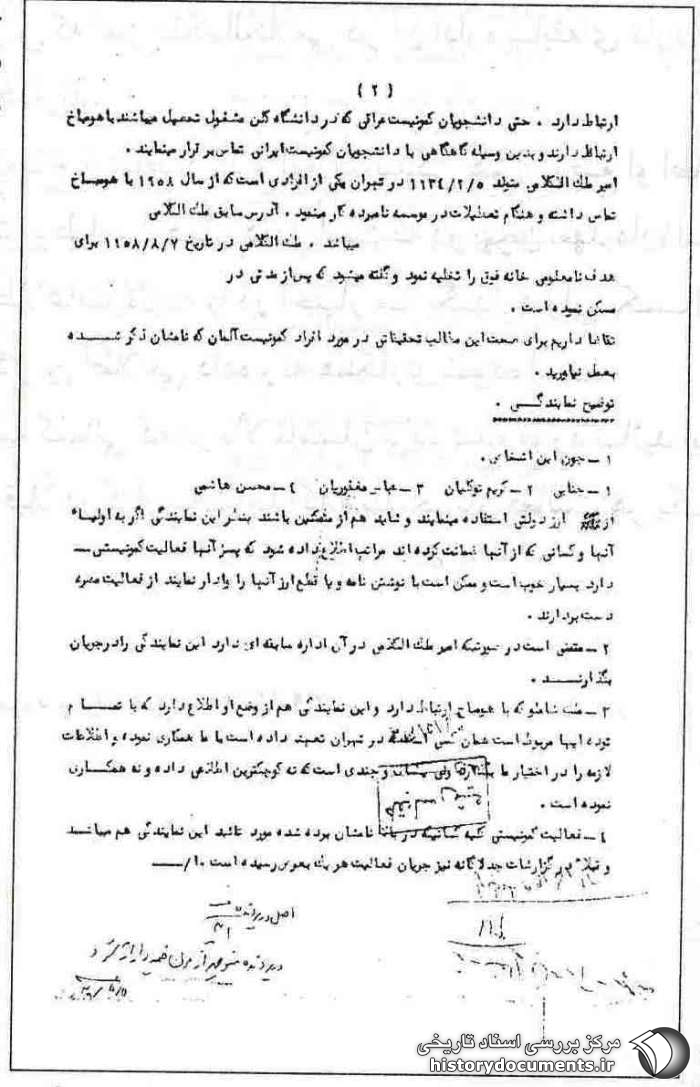 (٢)
ارتباط دارد . حتی دانشجویان کمونیست عراقی که در دانشگاه کلن مشغول تحصیل میباشند با هوماخ
ارتباط دارند و بدین وسیله گاهگاهی با دانشجویان کمونیست ایرانی تماس برقرار مینمایند .
امیر ملک الکلامی متولد ١١٣٤/٢/٥ در تهران یکی از افرادی است که از سال ١٩٥٨ با هوماخ
تماس داشته و هنگام تعطیلات در موسسه نامبرده کار مینمود . آدرس سابق ملک الکلامی
میباشد . ملک الکلامی در تاریخ ١١٥٨/٨/٧ برای
هدف نامعلومی خانه فوق را تخلیه نمود و گفته میشود که پس از مدتی در
مسکن نموده است .
تقاضا داریم برای صحت این مطالب تحقیقاتی در مورد افراد کمونیست آلمان که نامشان ذکر شده
بعمل نیاورید .
توضیح نمایندگی .
١ - چون این اشخاص .
١ - جنابی ٢ - کریم توکلیان ٣ - عباس مغفوریان ٤ - محسن هاشمی
از ارز دولتی استفاده مینمایند و شاید هم از متمکنین باشند بنظر این نمایندگی اگر به اولیاء
آنها و کسانی که از آنها ضمانت کرده اند مراتب اطلاع داده شود که پسر آنها فعالیت کمونیستی
دارد بسیار خوب است و ممکن است با نوشتن نامه و یا قطع ارز آنها را وادار نمایند از فعالیت مضره
دست بردارند .
٢ - مقتضی است در صورتیکه امیر ملک الکلامی در آن اداره سابقه ای دارد این نمایندگی را در جریان
بگذارند .
٣ - شاملو که با هوماخ ارتباط دارد و این نمایندگی هم از وضع او اطلاع دارد که با تمام
توده ایها مربوط است همان است که در تهران تعهد داده است با ما همکاری نموده و اطلاعات
لازمه را در اختیار ما بگذارد ولی چندی است که نه کوچکترین اطلاعی داده و نه همکاری
نموده است .
٤ - فعالیت کمونیستی کلیه کسانیکه در بالا نامشان برده شده مورد تائید این نمایندگی هم میباشد
و قبلا در گزارشات جداگانه نیز جریان فعالیت هر یک بعرض رسیده است .
اصل در پرونده
مرکز بررسی اسناد تاریخی
historydocuments.ir